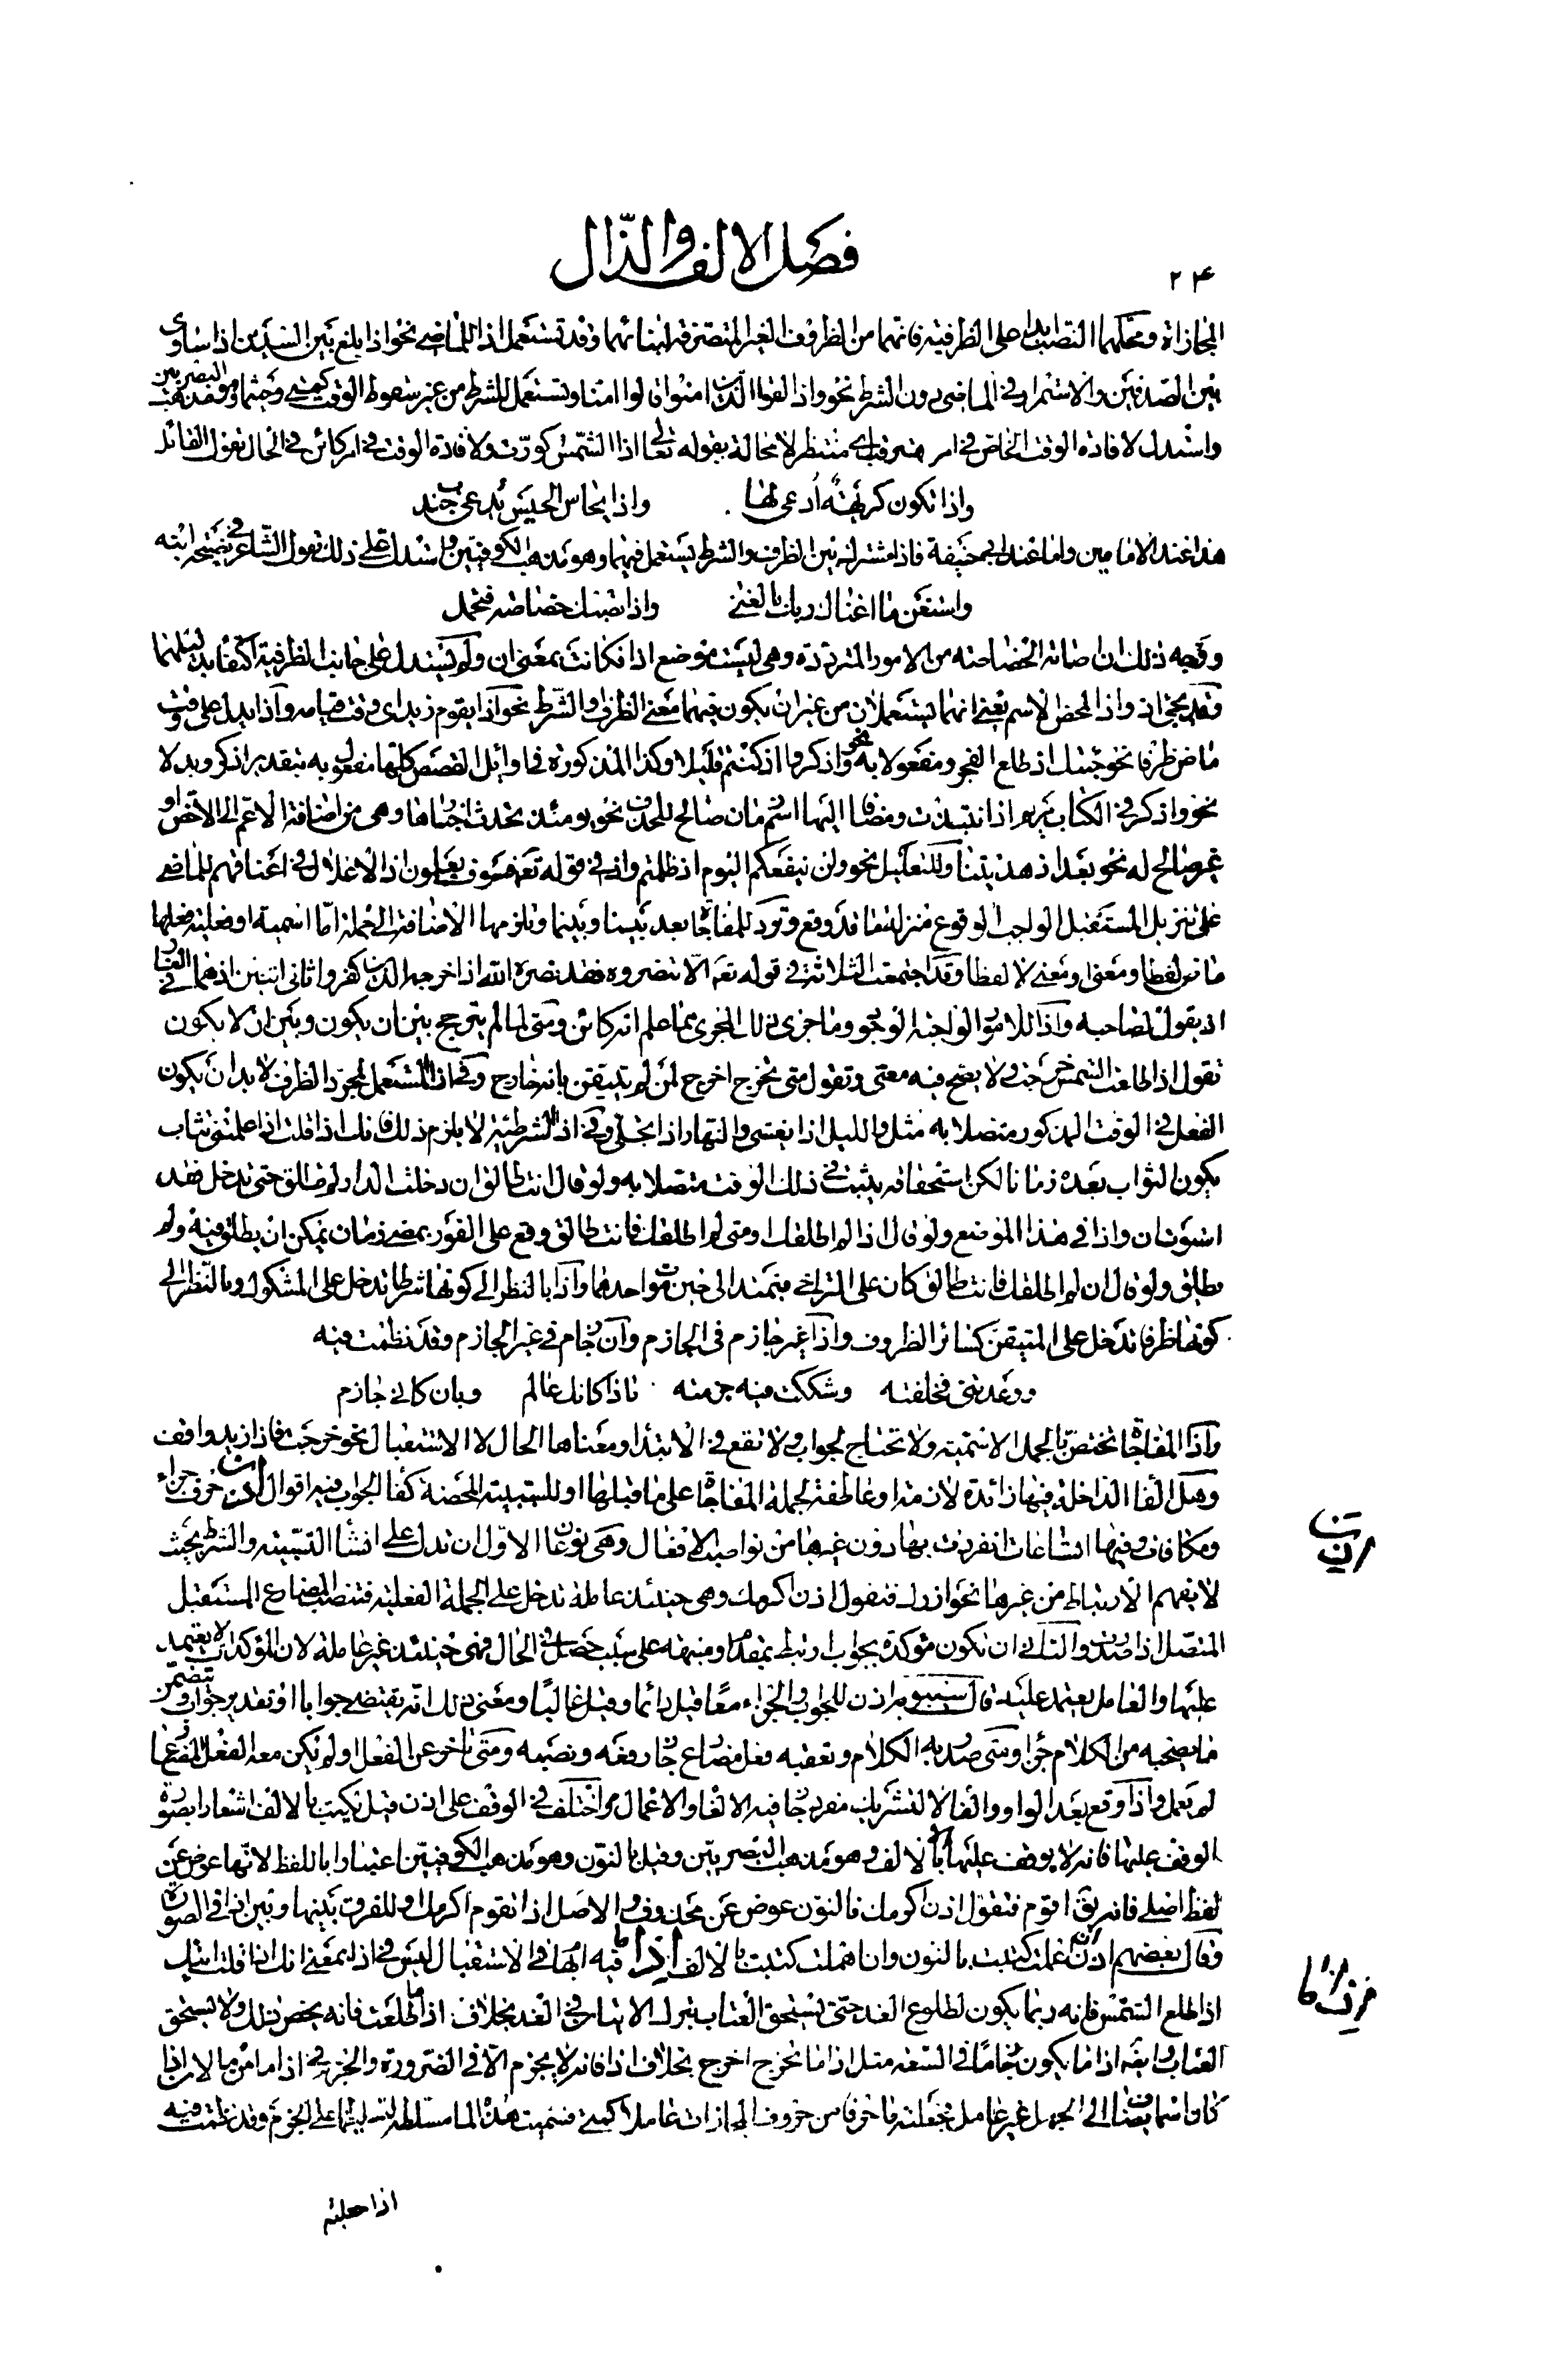 فصل الالف والذال
۲۴
المجازاة ومحلهما النصب ابدا على الظرفية فانهما من الظروف الغير المتصرفة لبنائهما وقد تستعمل اذا للماضي نحو اذا بلغ بين السدين اذا ساوى
بين الصدفين والاستمرار في الماضي دون الشرط نحو واذا لقوا الذين امنوا قالوا امنا وتستعمل للشرط من غير سقوط الوقت كمتى وحيثما وهو مذهب البصريين
واستدل لافادة الوقت الخاص في امر مترقب اي منتظر لا محالة بقوله تعالى اذا الشمس كورت ولافادة الوقت في امر كائن في الحال بقول القائل
واذا تكون كريهة أدعى لها واذا يحاس الحيس يدعى جندب
هذا عند الامامين واما عند ابي حنيفة فاذا مشترك بين الظرف والشرط يستعمل فيهما وهو مذهب الكوفيين واستدل على ذلك بقول الشاعر في نصيحة ابنه
واستغن ما اغناك ربك بالغنى واذا تصبك خصاصة فتجمل
ووجه ذلك ان اصابة الخصاصة من الامور المترددة وهي ليست موضع اذا فكانت بمعنى ان ولم يستدل على جانب الظرفية اكتفاء بدليلهما
وقد يجئ اذ واذا لمحض الاسم يعني انهما يستعملان من غير ان يكون فيهما معنى الظرف والشرط نحو اذا يقوم زيد اي وقت قيامه واذ يدل على وقت
ماض ظرفا نحو جئتك اذ طلع الفجر ومفعولا به نحو واذكروا اذ كنتم قليلا وكذا المذكورة في اوائل القصص كلها مفعول به بتقدير اذكر وبدلا
نحو واذكر في الكتاب مريم اذ انتبذت ومضافا اليها اسم زمان صالح للحذف نحو يومئذ تحدث اخبارها وهي من اضافة الاعم الى الاخص او
غير صالح له نحو بعد اذ هديتنا وللتعليل نحو ولن ينفعكم اليوم اذ ظلمتم واذ في قوله تعالى فسوف يعلمون اذ الاغلال في اعناقهم للماضي
على تنزيل المستقبل الواجب الوقوع منزلة ما قد وقع وترد للمفاجأة بعد بينا وبينما وتلزمها الاضافة الى جملة اما اسمية او فعلية فعلها
ماض لفظا ومعنى او معنى لا لفظا وقد اجتمعت الثلاثة في قوله تعالى الا تنصروه فقد نصره الله اذ اخرجه الذين كفروا ثاني اثنين اذ هما في الغار
اذ يقول لصاحبه واذا للامور الواجبة الوجود وما جرى ذلك المجرى مما علم انه كائن ومتى لما لم يترجح بين ان يكون وبين ان لا يكون
تقول اذا طلعت الشمس خرجت ولا يصح فيه متى وتقول متى تخرج اخرج لمن لم يتيقن بانه خارج وفي اذا المستعمل لمجرد الظرف لا بد ان يكون
الفعل في الوقت المذكور متصلا به مثل والليل اذا يغشى والنهار اذا تجلى وفي اذا الشرطية لا يلزم ذلك فانك اذا قلت اذا علمتني تثاب
يكون الثواب بعده زمانا لكن استحقاقه يثبت في ذلك الوقت متصلا به ولو قال انت طالق ان دخلت الدار لم تطلق حتى تدخل فقد
استوت ان واذا في هذا الموضع ولو قال اذا لم اطلقك او متى لم اطلقك فانت طالق وقع على الفور بمضي زمان يمكن ان يطلق فيه ولم
يطلق ولو قال ان لم اطلقك فانت طالق كان على التراخي فيمتد الى حين موت احدهما واذا بالنظر الى كونها شرطا تدخل على المشكوك وبالنظر الى
كونها ظرفا تدخل على المتيقن كسائر الظروف واذا غير جازم في الجازم وان جازم في غير الجازم وقد نظمت فيه
ووعدتني فخلفته وشككت فيه جزمته فاذا كانك عالم وبان كاني جازم
واذا المفاجأة تختص بالجمل الاسمية ولا تحتاج لجواب ولا تقع في الابتداء ومعناها الحال لا الاستقبال نحو خرجت فاذا زيد واقف
وهل الفا الداخلة فيها زائدة لازمة او عاطفة لجملة المفاجأة على ما قبلها او للسببية المحضة كفاء الجواب فيه اقوال اذن حرف جزاء
ومكافات وفيها اتساعات انفردت بها دون غيرها من نواصب الافعال وهي نوعان الاول ان تدل على انشا السببية والشرط بحيث
لا يفهم الارتباط من غيرها نحو ازورك فتقول اذن اكرمك وهي حينئذ عاملة تدخل على الجملة الفعلية فتنصب المضارع المستقبل
المتصل اذا صدرت والثاني ان تكون مؤكدة بجواب ارتبط بمقدم او منبهة على سبب حصل في الحال فهي حينئذ غير عاملة لان المؤكدات لا يعتمد
عليها والعامل يعتمد عليه قال سيبويه اذن للجواب والجزاء معا قيل دائما وقيل غالبا ومعنى ذلك انه يقتضي جوابا او تقدير جواب وتضمن
ما يصحبه من الكلام جزاء ومتى صدر به الكلام وتعقبه فعل مضارع جاز رفعه ونصبه ومتى تاخر عن الفعل او لم يكن معه الفعل المضارع
لم يعمل واذا وقع بعد الواو والفا لا لتشريك مفرد جاز فيه الالغاء والاعمال واختلف في الوقف على اذن قيل تكتب بالالف اشعارا بصورة
الوقف عليها فانه لا يوقف عليها الا بالالف وهو مذهب البصريين وقيل بالنون وهو مذهب الكوفيين اعتبارا باللفظ لانها عوض عن
لفظ اصلي فانه يق اقوم فتقول اذن اكرمك فالنون عوض عن محذوف والاصل اذا تقوم اكرمك وللفرق بينها وبين اذا في الصورة
وقال بعضهم اذن ان عملت كتبت بالنون وان اهملت كتبت بالالف اذا ما فيه ابهام في الاستقبال ليس في اذا بمعنى انك اذا قلت اتيك
اذا طلع الشمس فانه ربما يكون لطلوع الغد حتى يستحق العتاب بترك الاتيان في الغد بخلاف اذا ما طلعت فانه يخص ذلك ولا يستحق
العتاب وايضا اذا ما يكون جازما في السعة مثل اذا ما تخرج اخرج بخلاف اذا فانه لا يجزم الا في الضرورة والجزم في اذا ما من ما لا من اذا
كان اسما يضاف الى الجمل غير عامل فجعلته ما حرفا من حروف المجازات عاملا كمتى فسميت هذه الما مسلطة لتسليطها على الجزم وقد نظمت فيه
اذا حلبته